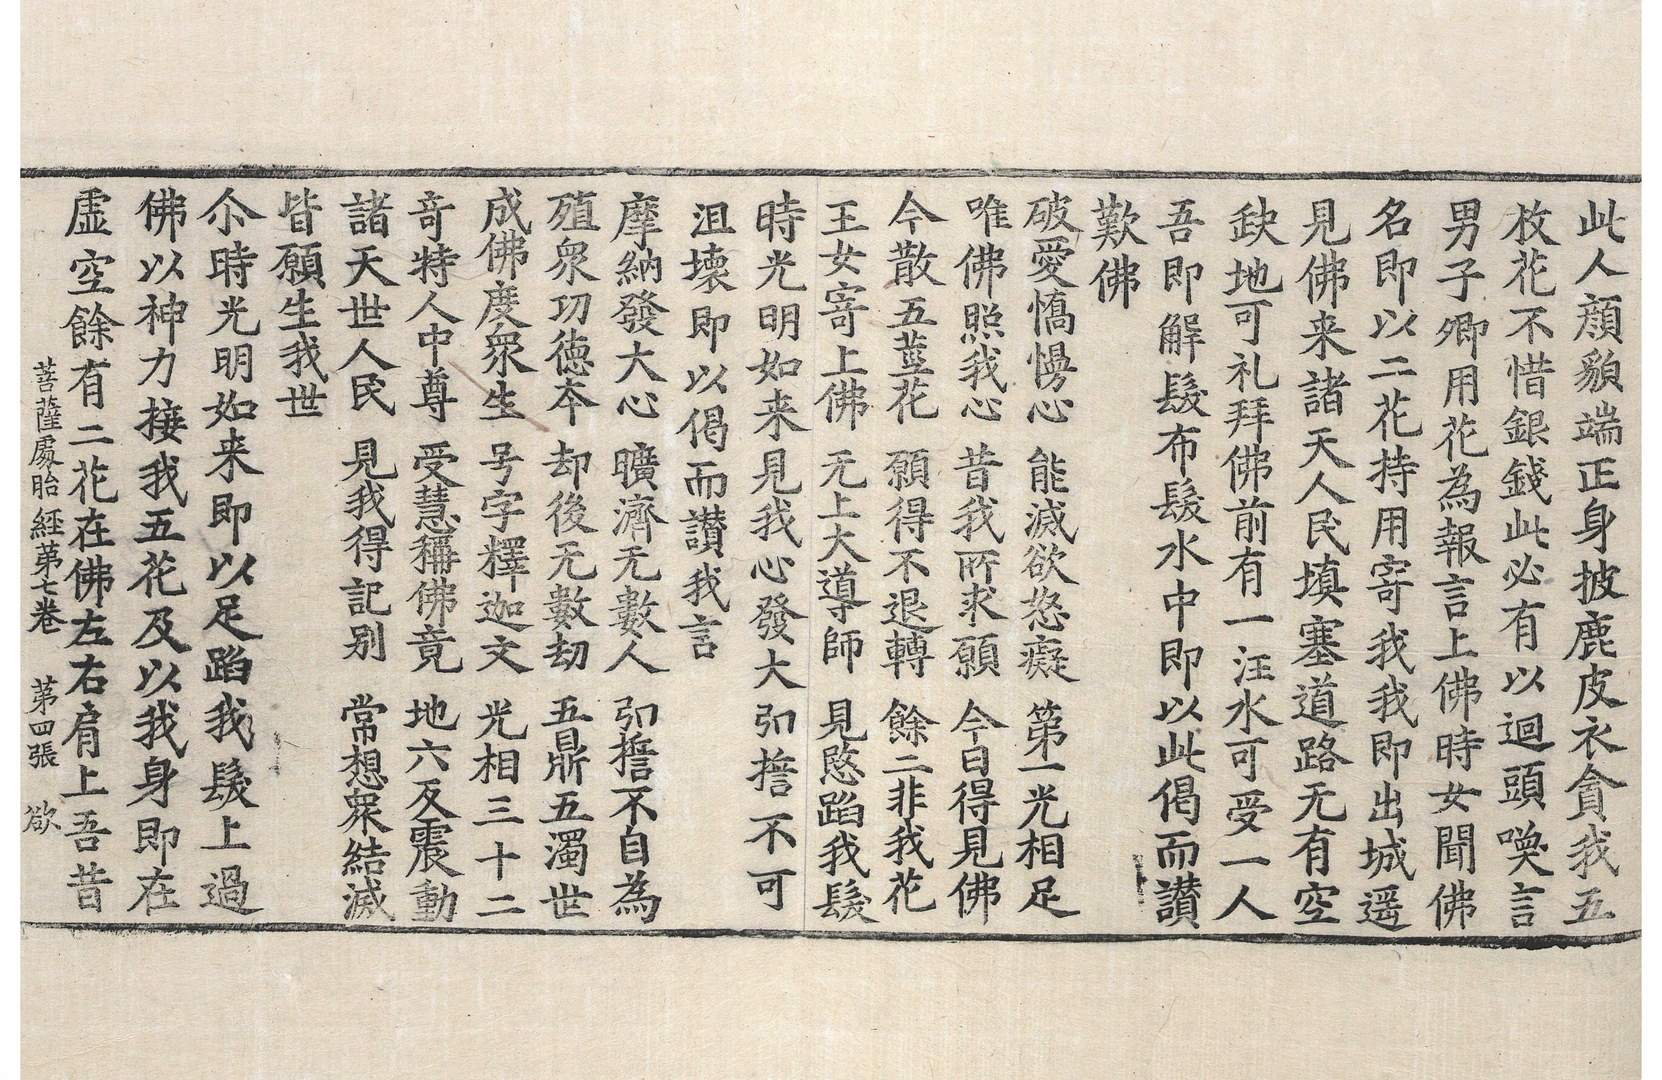 此人顔貌端正身披鹿皮衣貪我五
枚花不惜銀錢此必有以迴頭喚言
男子卿用花為報言上佛時女聞佛
名即以二花持用寄我我即出城遥
見佛来諸天人民填塞道路无有空
缺地可礼拜佛前有一汪水可受一人
吾即解髮布髮水中即以此偈而讃
歎佛
破愛憍慢心 能滅欲怒癡 第一光相足
唯佛照我心 昔我所求願 今日得見佛
今散五莖花 願得不退轉 餘二非我花
王女寄上佛 无上大導師 見愍蹈我髮
時光明如来見我心發大弘擔不可
沮壞即以偈而讃我言
摩納發大心 曠濟无數人 弘擔不自為
殖衆功德夲 却後无數劫 五鼎五濁世
成佛度衆生 号字釋迦文 光相三十二
竒特人中尊 受慧稱佛竟 地六反震動
諸天世人民 見我得記别 常想衆結滅
皆願生我世
尒時光明如来即以足蹈我髮上過
佛以神力接我五花及以我身即在
虚空餘有二花在佛左右肩上吾昔
菩薩處胎經第七卷 第四張 欲